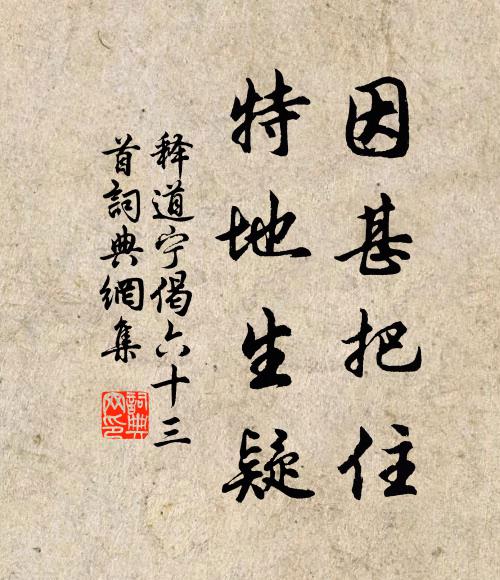 因甚把住
特地生疑
释道宁偈六十三
首詞典網集
詞典网印